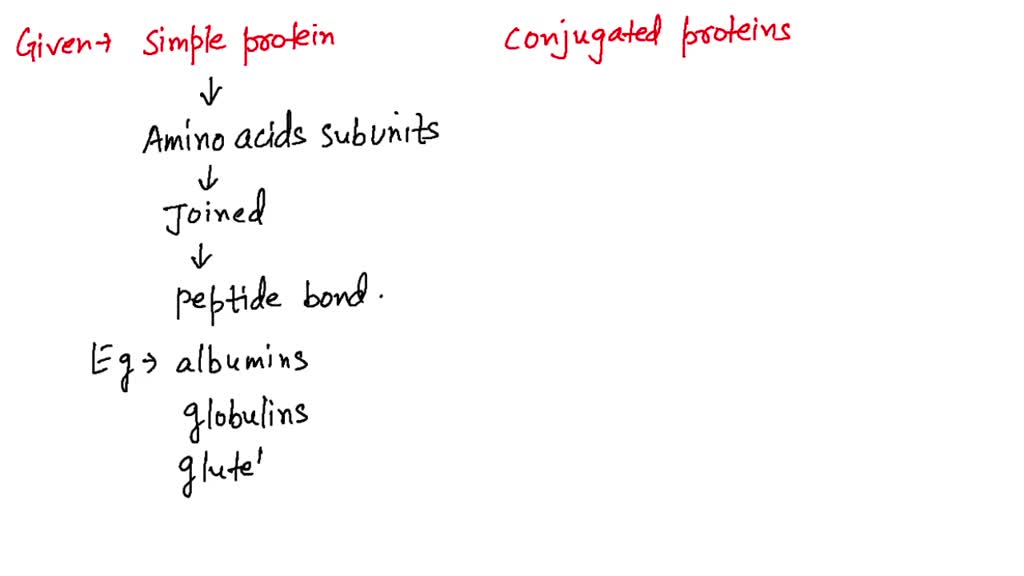 Given→ Simple protein
conjugated proteins
↓
Amino acids subunits
↓
Joined
↓
peptide bond.
Eg→ albumins
globulins
glute'